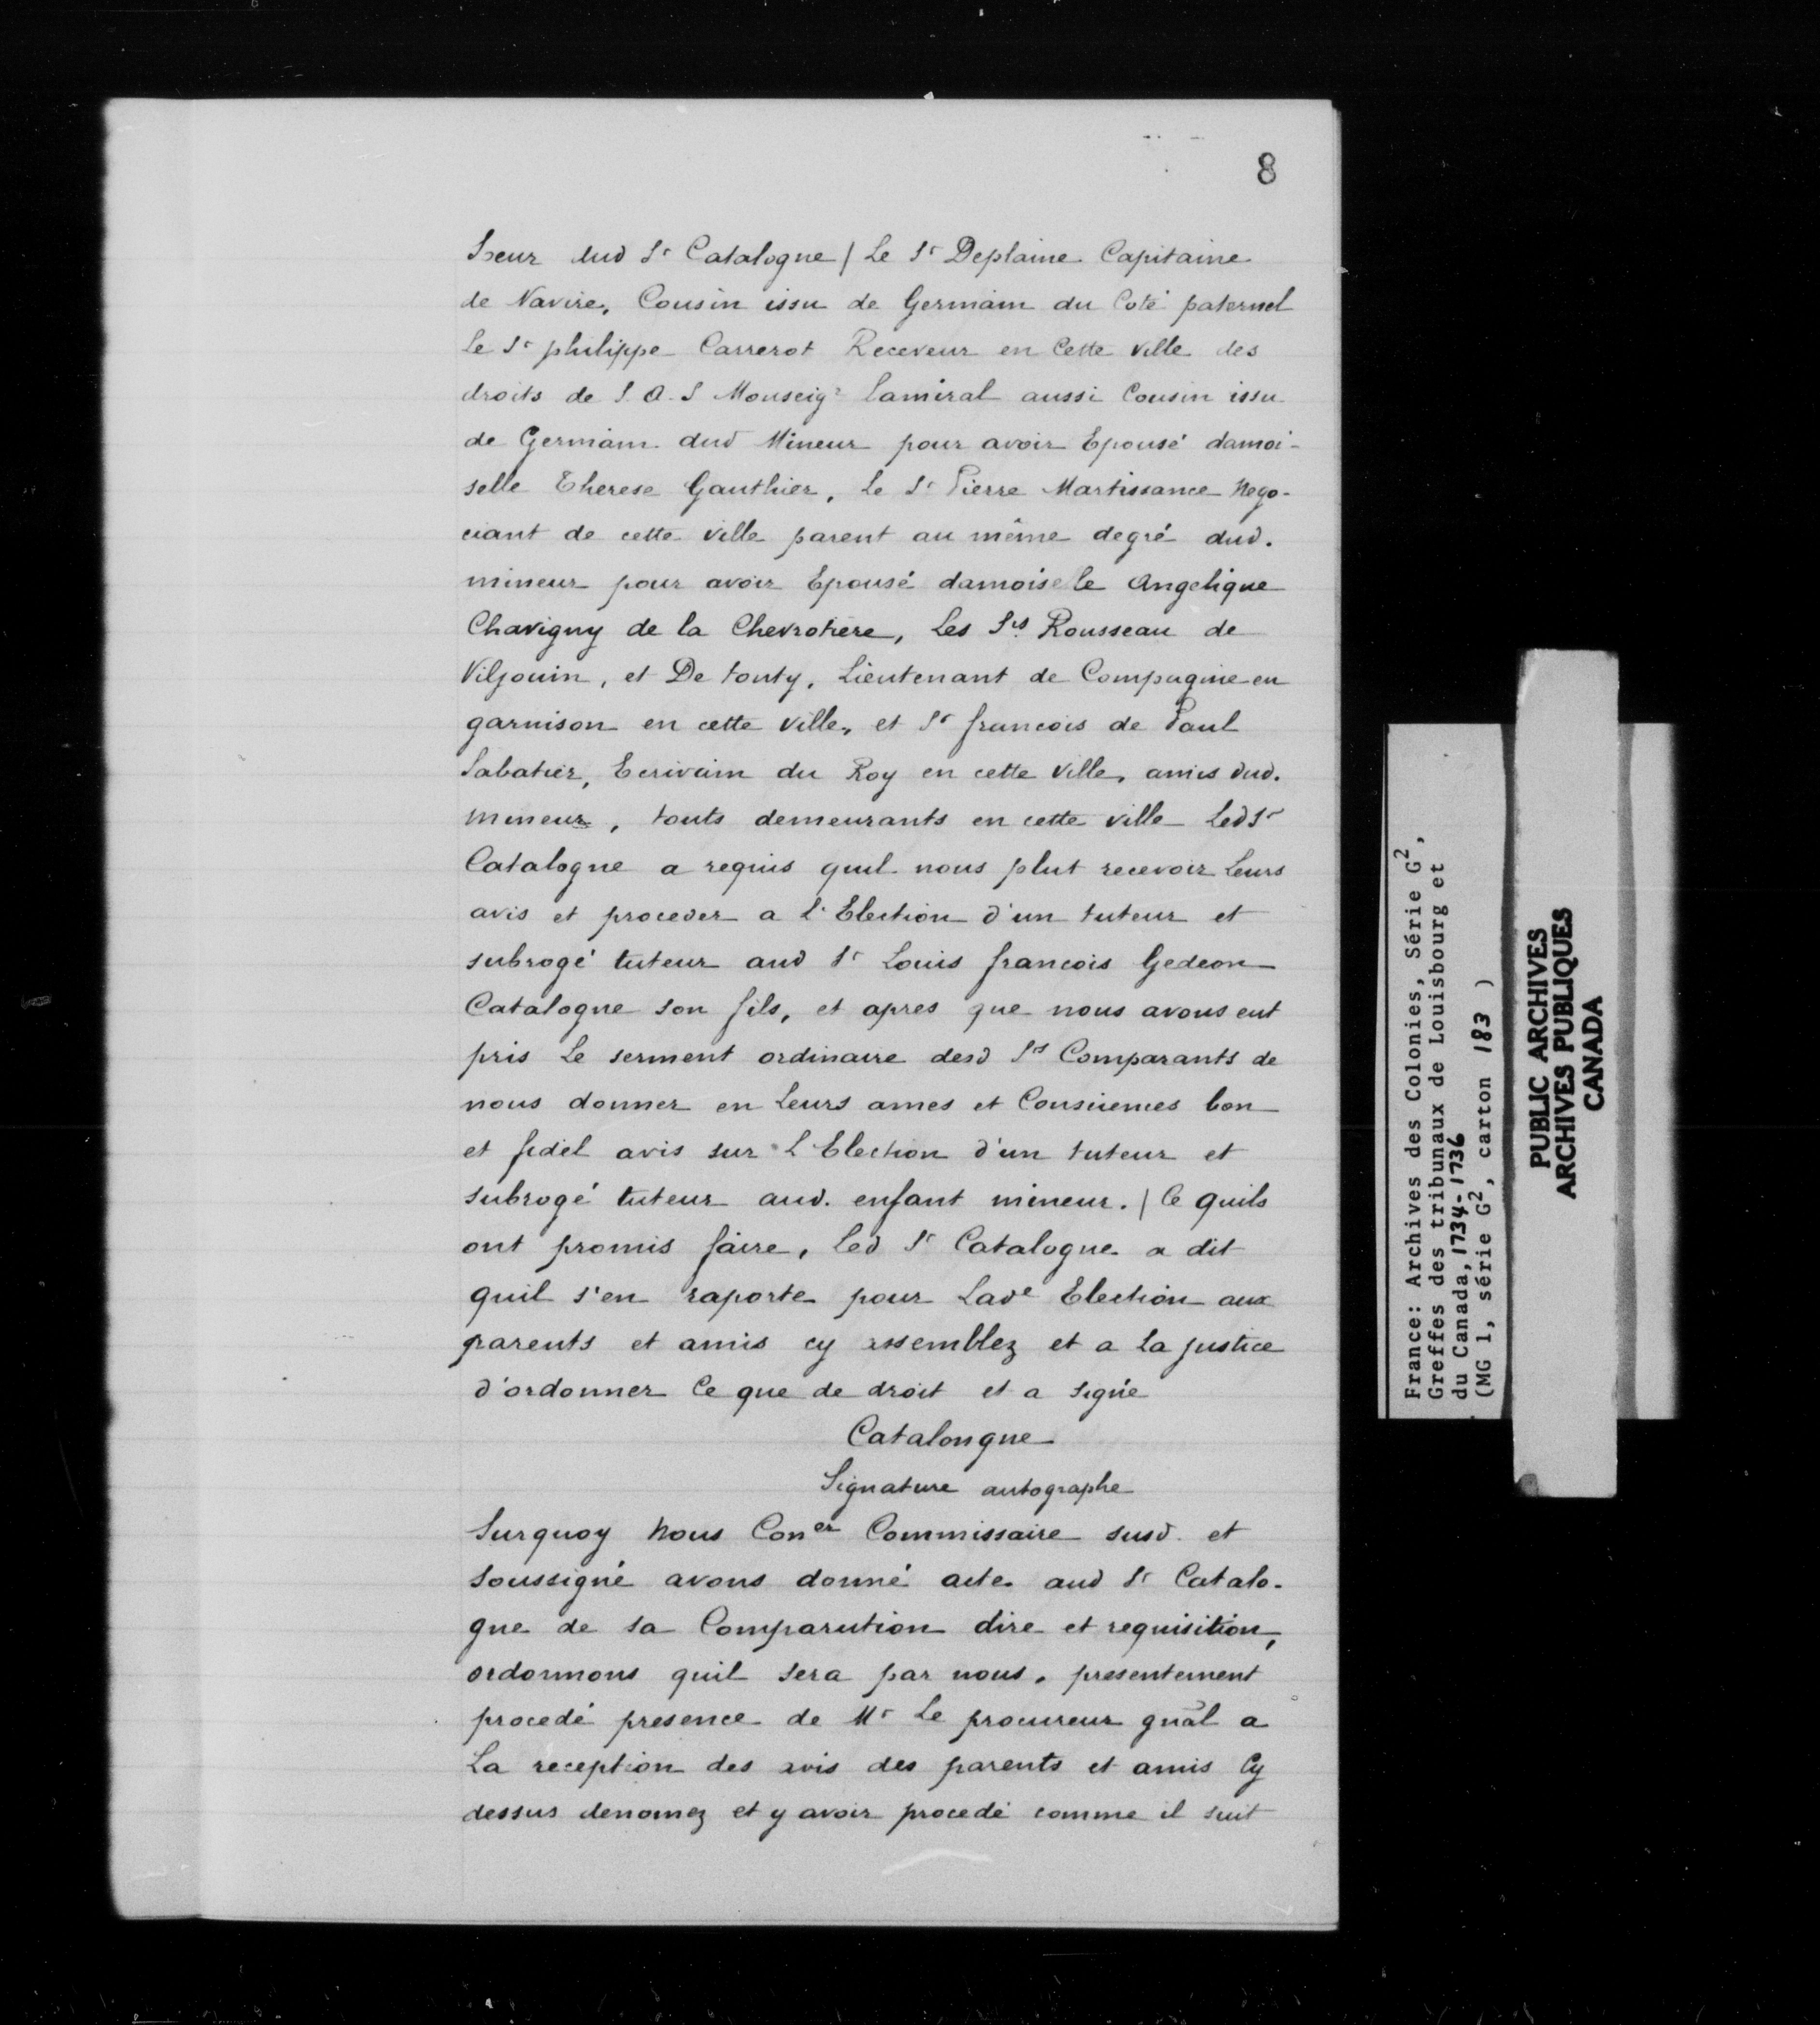 8
Sœur dud Sr Catalogne / Le Sr Deplaine Capitaine
de Navire, Cousin issu de Germain du Coté paternel
Le Sr philippe Carrerot Receveur en Cette ville des
droits de S. A. S Monseigr Lamiral aussi Cousin issu
de Germain dud Mineur pour avoir Epousé damoi-
selle Therese Gauthier, Le Sr Pierre Martissance Nego-
ciant de cette ville parent au même degré dud.
mineur pour avoir Epousé damoiselle Angelique
Chavigny de la Chevrotiere, Les Srs Rousseau de
Viljouin, et De tonty, Lieutenant de Compagnie en
garnison en cette ville, et Sr francois de Paul
Sabatier, Ecrivain du Roy en cette Ville, amis dud.
mineur, touts demeurants en cette ville Led Sr
Catalogne a requis quil nous plut recevoir Leurs
avis et proceder a L'Election d'un tuteur et
subrogé tuteur aud Sr Louis francois Gedeon
Catalogne son fils, et apres que nous avons eut
pris Le serment ordinaire desd Srs Comparants de
nous donner en Leurs ames et Consciences bon
et fidel avis sur L'Election d'un tuteur et
subrogé tuteur aud. enfant mineur. / Ce quils
ont promis faire, Led Sr Catalogne a dit
quil s'en raporte pour Lade Election aux
parents et amis cy assemblez et a La justice
d'ordonner Ce que de droit et a signé
Catalongne
Signature autographe
Surquoy Nous Coner Commissaire susd. et
soussigné avons donné acte aud Sr Catalo-
gne de sa Comparution dire et requisition,
ordonnons quil sera par nous, presentement
procedé presence de Mr Le procureur gnāl a
La reception des avis des parents et amis Cy
dessus denomez et y avoir procedé comme il suit
France: Archives des Colonies, Série G2,
Greffes des tribunaux de Louisbourg et
du Canada, 1734-1736
(MG 1, série G2, carton 183 )
PUBLIC ARCHIVES
ARCHIVES PUBLIQUES
CANADA